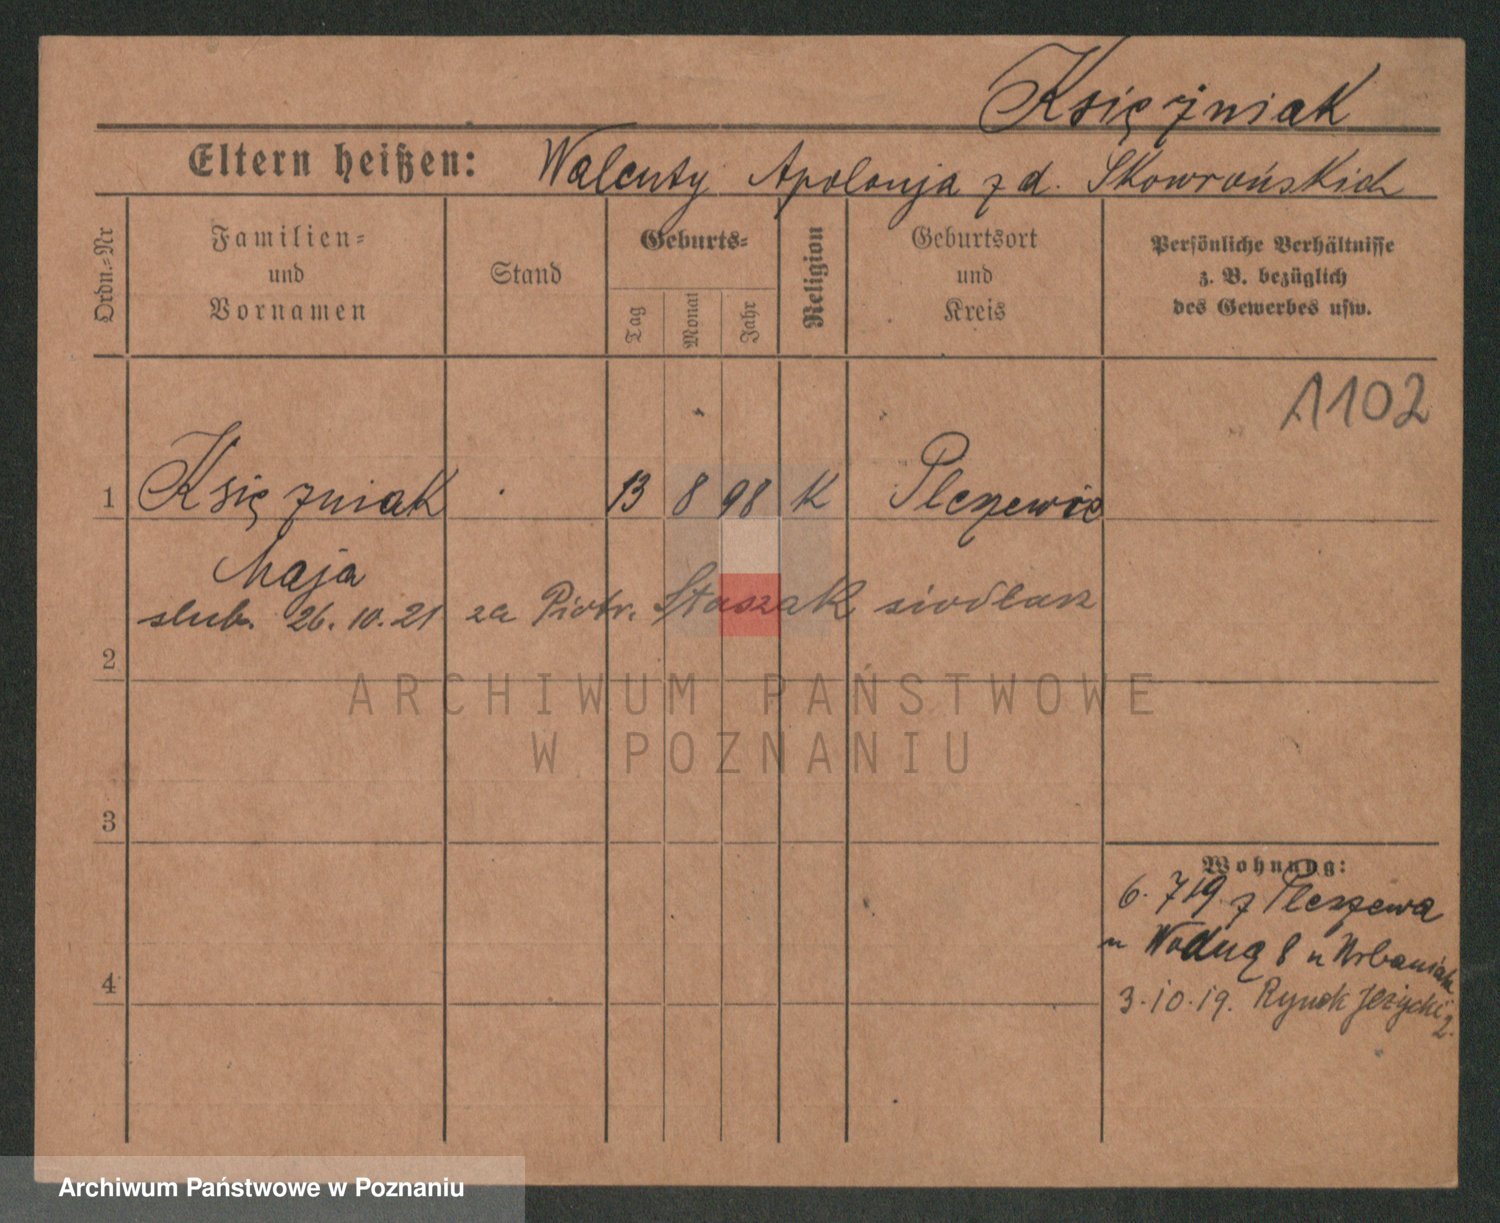 Księżniak
Eltern heißen: Walenty Apolonja z d. Skowrońskich
Ordn.=Nr
Familien=
und
Vornamen
Stand
Geburts=
Tag
Monat
Jahr
Religion
Geburtsort
und
Kreis
Persönliche Verhältnisse
z. B. bezüglich
des Gewerbes usw.
1102
1 Księżniak 13 8 98 K Pleszewie
Maja
slub. 26.10.21 za Piotr. Staszak siodlarz
2
ARCHIWUM PAŃSTWOWE
W POZNANIU
3
Wohnung:
6. 719 z Pleszewa
Wodną 8 u Urbaniak
4
3.10.19. Rynek Jeżycki
2.
Archiwum Państwowe w Poznaniu